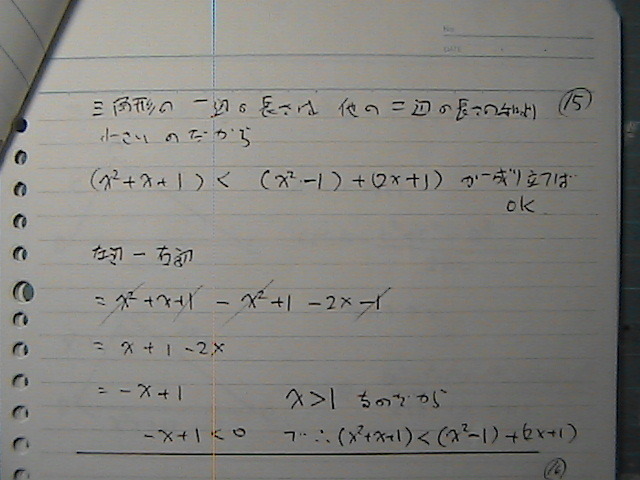 No.
DATE
三角形の一辺の長さは 他の二辺の長さの和より (15)
小さいのだから
(x²+x+1) < (x²-1)+(2x+1) が成り立てば
OK
左辺-右辺
= x²+x+1 - x²+1 -2x-1
= x+1-2x
= -x+1 x>1 なのだから
-x+1<0 で ∴ (x²+x+1) < (x²-1)+(2x+1)
(16)